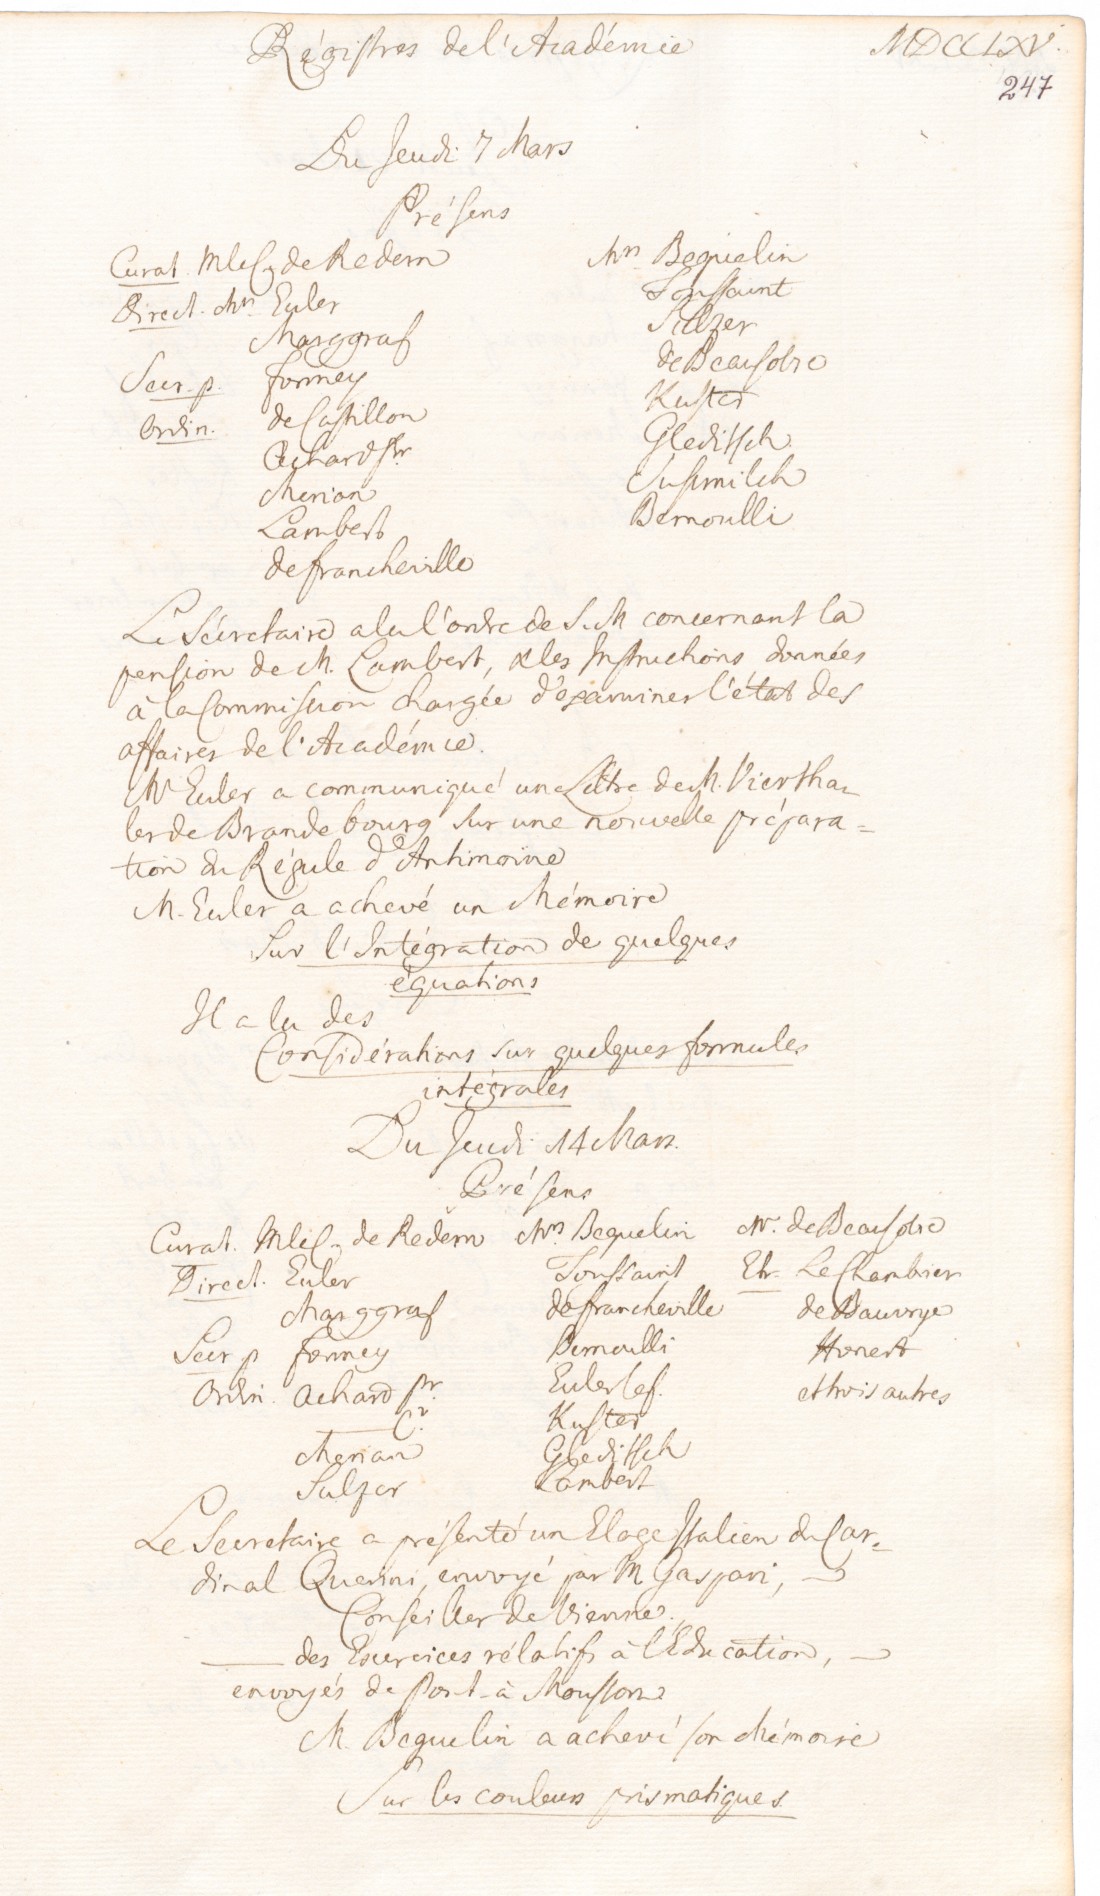 Régistres de l'Académie MDCCLXV.
247
Du Jeudi 7 Mars
Présens
Curat. Mlec. de Redern
Direct. Mrs. Euler
Marggraf
Secr. p. Formey
Ordin. de Castillon
Achard Pr.
Merian
Lambert
de Francheville
Mrs. Beguelin
Toussaint
Sulzer
de Beausobre
Kuster
Gleditsch
Susmilch
Bernoulli
Le Sécretaire a lu l'ordre de S. M concernant la
pension de M. Lambert, & les Instructions données
à la Commission chargée d'examiner l'état des
affaires de l'Académie.
Mr Euler a communiqué une Lettre de M. Viertha-
ler de Brandebourg sur une nouvelle prépara=
tion du Régule d'Antimoine
M. Euler a achevé un Mémoire
Sur l'Intégration de quelques
équations
Il a lu des
Considérations sur quelques formules
intégrales
Du Jeudi 14 Mars.
Présens
Curat. Mlec. de Redern
Direct. Euler
Marggraf
Secr p Formey
Ordin. Achard Pr.
Merian
Sulzer
Mrs. Beguelin
Toussaint
de Francheville
Bernoulli
Euler le f.
Kuster
Gleditsch
Lambert
Mr. de Beausobre
Etr. Le Chambrier
de Bauvrye
Honert
et trois autres
Le Secretaire a présenté un Eloge Italien du Car=
dinal Querini, envoyé par M Gaspari,
Conseiller de Vienne.
—— des Exercices rélatifs à l'Education, —
envoyés de Pont-à Mousson
M. Beguelin a achevé son Mémoire
Sur les couleurs prismatiques.